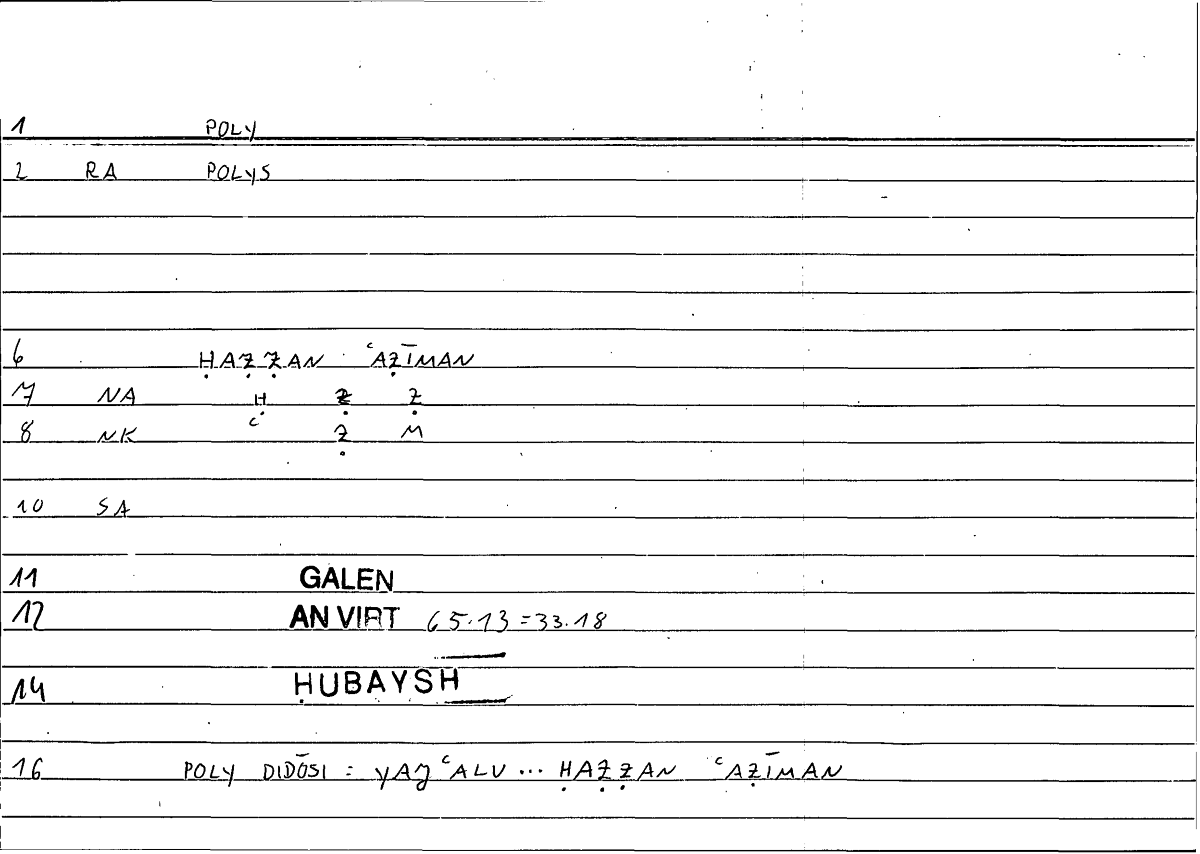 1 POLY
2 RA POLYS
6 ḤAẒẒAN ʿAẒĪMAN
7 NA Ḥ Ẓ Ẓ
8 NK ʿ Ẓ M
10 SA
11 GALEN
12 AN VIRT 65.13=33.18
14 ḤUBAYSH
16 POLY DIDŌSI : YAJʿALU ... ḤAẒẒAN ʿAẒĪMAN